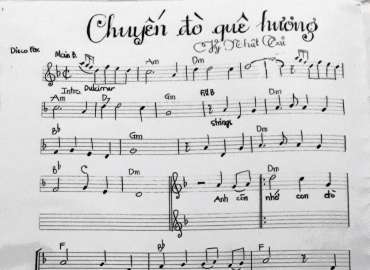 Chuyến đò quê hương
Vỹ Nhật Tảo
Disco Fox
Main B.
Am Dm
Intro Dulcimer
Am D7 Gm Fill B Dm
Strings
Bb Gm Dm
Bb C Dm
Anh còn nhớ con đò
F Bb F